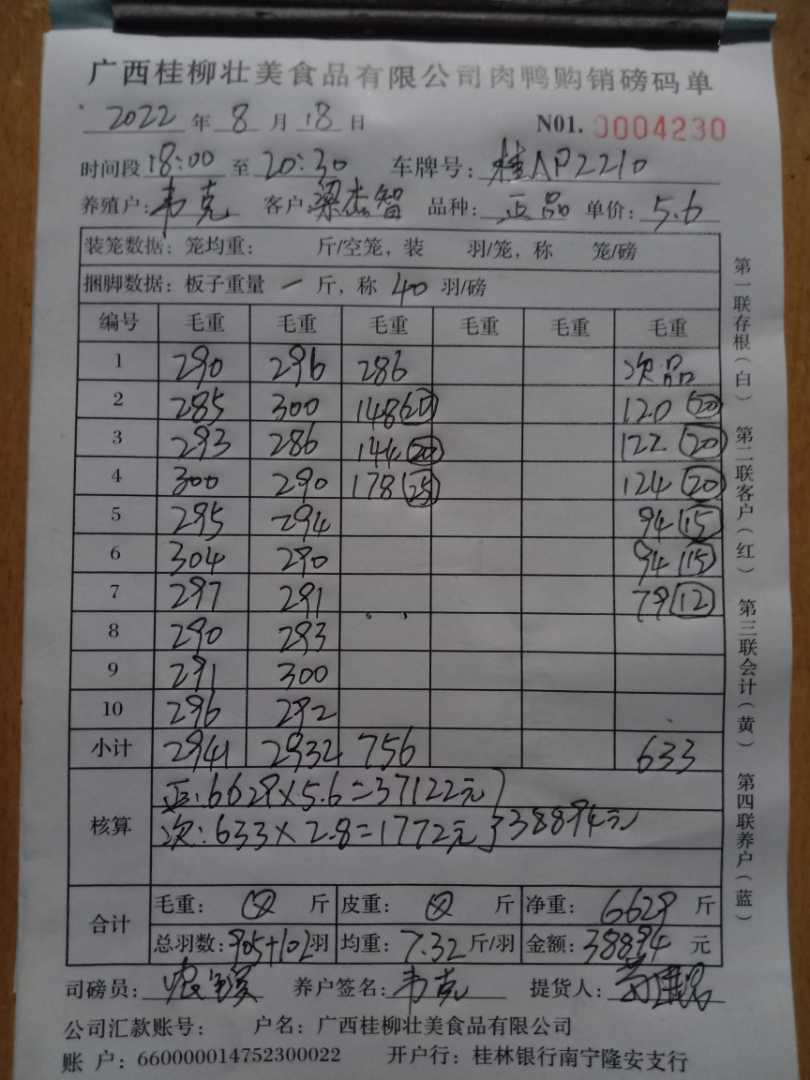 广西桂柳壮美食品有限公司肉鸭购销磅码单
2022 年 8 月 18 日 N01. 0004230
时间段 18:00 至 20:30 车牌号: 桂AP2210
养殖户: 韦克 客户 梁杰智 品种: 正品 单价: 5.6
装笼数据: 笼均重: 斤/空笼, 装 羽/笼, 称 笼/磅
捆脚数据: 板子重量 一 斤, 称 40 羽/磅
编号 毛重 毛重 毛重 毛重 毛重 毛重
1 290 296 286 次品
2 285 300 148(20) 120(20)
3 293 286 144(20) 122(20)
4 300 290 178(25) 124(20)
5 295 294 94(15)
6 304 290 94(15)
7 297 291 79(12)
8 290 293
9 291 300
10 296 292
小计 2941 2932 756 633
核算
正:6629×5.6=37122元
次:633×2.8=1772元 }38894元
合计
毛重: 斤 皮重: 斤 净重: 6629 斤
总羽数: 905+102 羽 均重: 7.32 斤/羽 金额: 38894 元
司磅员: 养户签名: 韦克 提货人:
公司汇款账号: 户名: 广西桂柳壮美食品有限公司
账 户: 660000014752300022 开户行: 桂林银行南宁隆安支行
第一联存根(白) 第二联客户(红) 第三联会计(黄) 第四联养户(蓝)